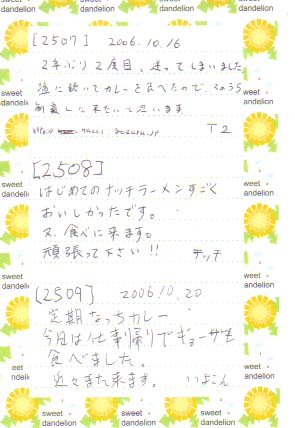 [2507] 2006.10.16
2年ぶり2度目、迷ってしまいました
塩に続いてカレーを食べたので、しょうゆ
制覇しに来たいと思います
T2
[2508]
はじめてのナッチラーメンすごく
おいしかったです。
又、食べに来ます。
頑張って下さい!!
チッチ
[2509] 2006.10.20
定期なっちカレー
今日は仕事帰りでギョーザも
食べました。
近々また来ます。
sweet dandelion